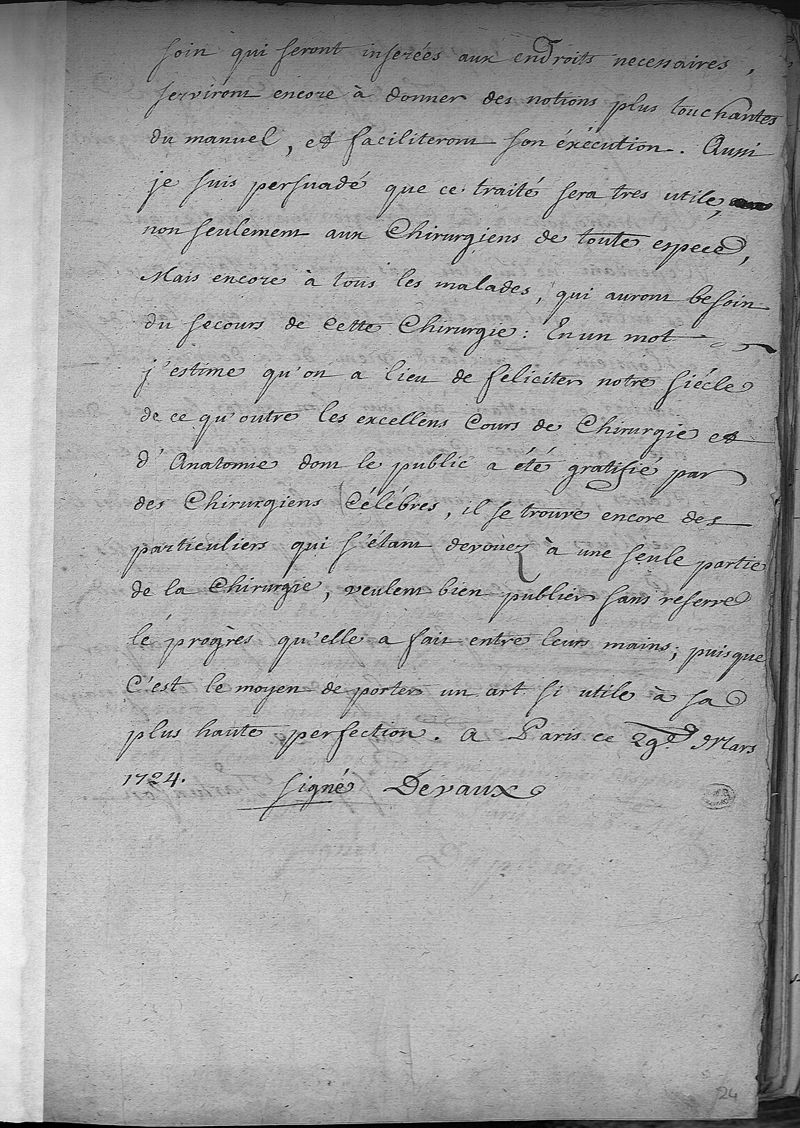 soin qui seront inserées aux endroits necessaires,
serviront encore à donner des notions plus touchantes
du manuel, et faciliteront son éxécution. Aussi
je suis persuadé que ce traité sera tres utile,
non seulement aux Chirurgiens de toute espece,
Mais encore à tous les malades, qui auront besoin
du secours de Cette Chirurgie : En un mot
j'estime qu'on a lieu de feliciter notre siécle
de ce qu'outre les excellens Cours de Chirurgie et
d'Anatomie dont le public a été gratifie par
des Chirurgiens Célébres, il se trouve encore des
particuliers qui s'étant devoüez à une seule partie
de la Chirurgie, veulent bien publier sans reserve
lé progrès qu'elle a fait entre leurs mains; puisque
C'est le moyen de porter un art si utile à sa
plus haute perfection. A Paris ce 29e. Mars
1724.
signé Devaux
24